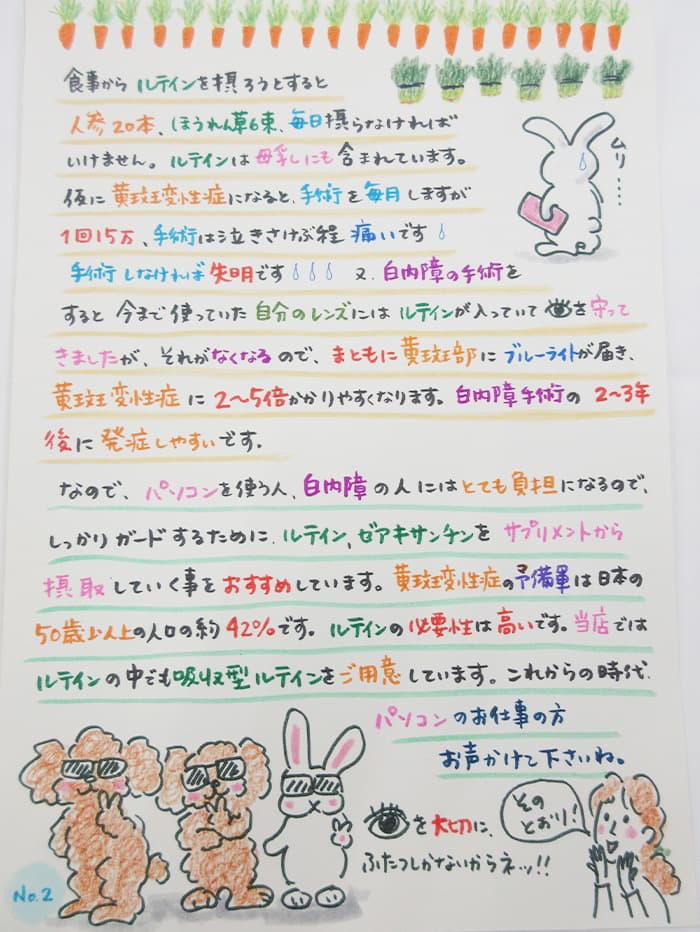 食事から ルテインを摂ろうとすると
人参20本、ほうれん草6束、毎日摂らなければ
いけません。ルテインは母乳にも含まれています。
仮に黄斑変性症になると、手術を毎月しますが
1回15万、手術は泣きさけぶ程 痛いです
手術しなければ失明です 又、白内障の手術を
すると今まで使っていた自分のレンズにはルテインが入っていて を守って
きましたが、それがなくなるので、まともに黄斑部にブルーライトが届き、
黄斑変性症に2〜5倍かかりやすくなります。白内障手術の2〜3年
後に発症しやすいです。
なので、パソコンを使う人、白内障の人にはとても負担になるので、
しっかりガードするために、ルテイン、ゼアキサンチンを サプリメントから
摂取していく事をおすすめしています。黄斑変性症の予備軍は日本の
50歳以上の人口の約42%です。ルテインの必要性は高いです。当店では
ルテインの中でも吸収型ルテインをご用意しています。これからの時代、
パソコンのお仕事の方
お声かけて下さいね。
ムリ....
を大切に、
ふたつしかないからネッ!!
その
とおり!
No.2